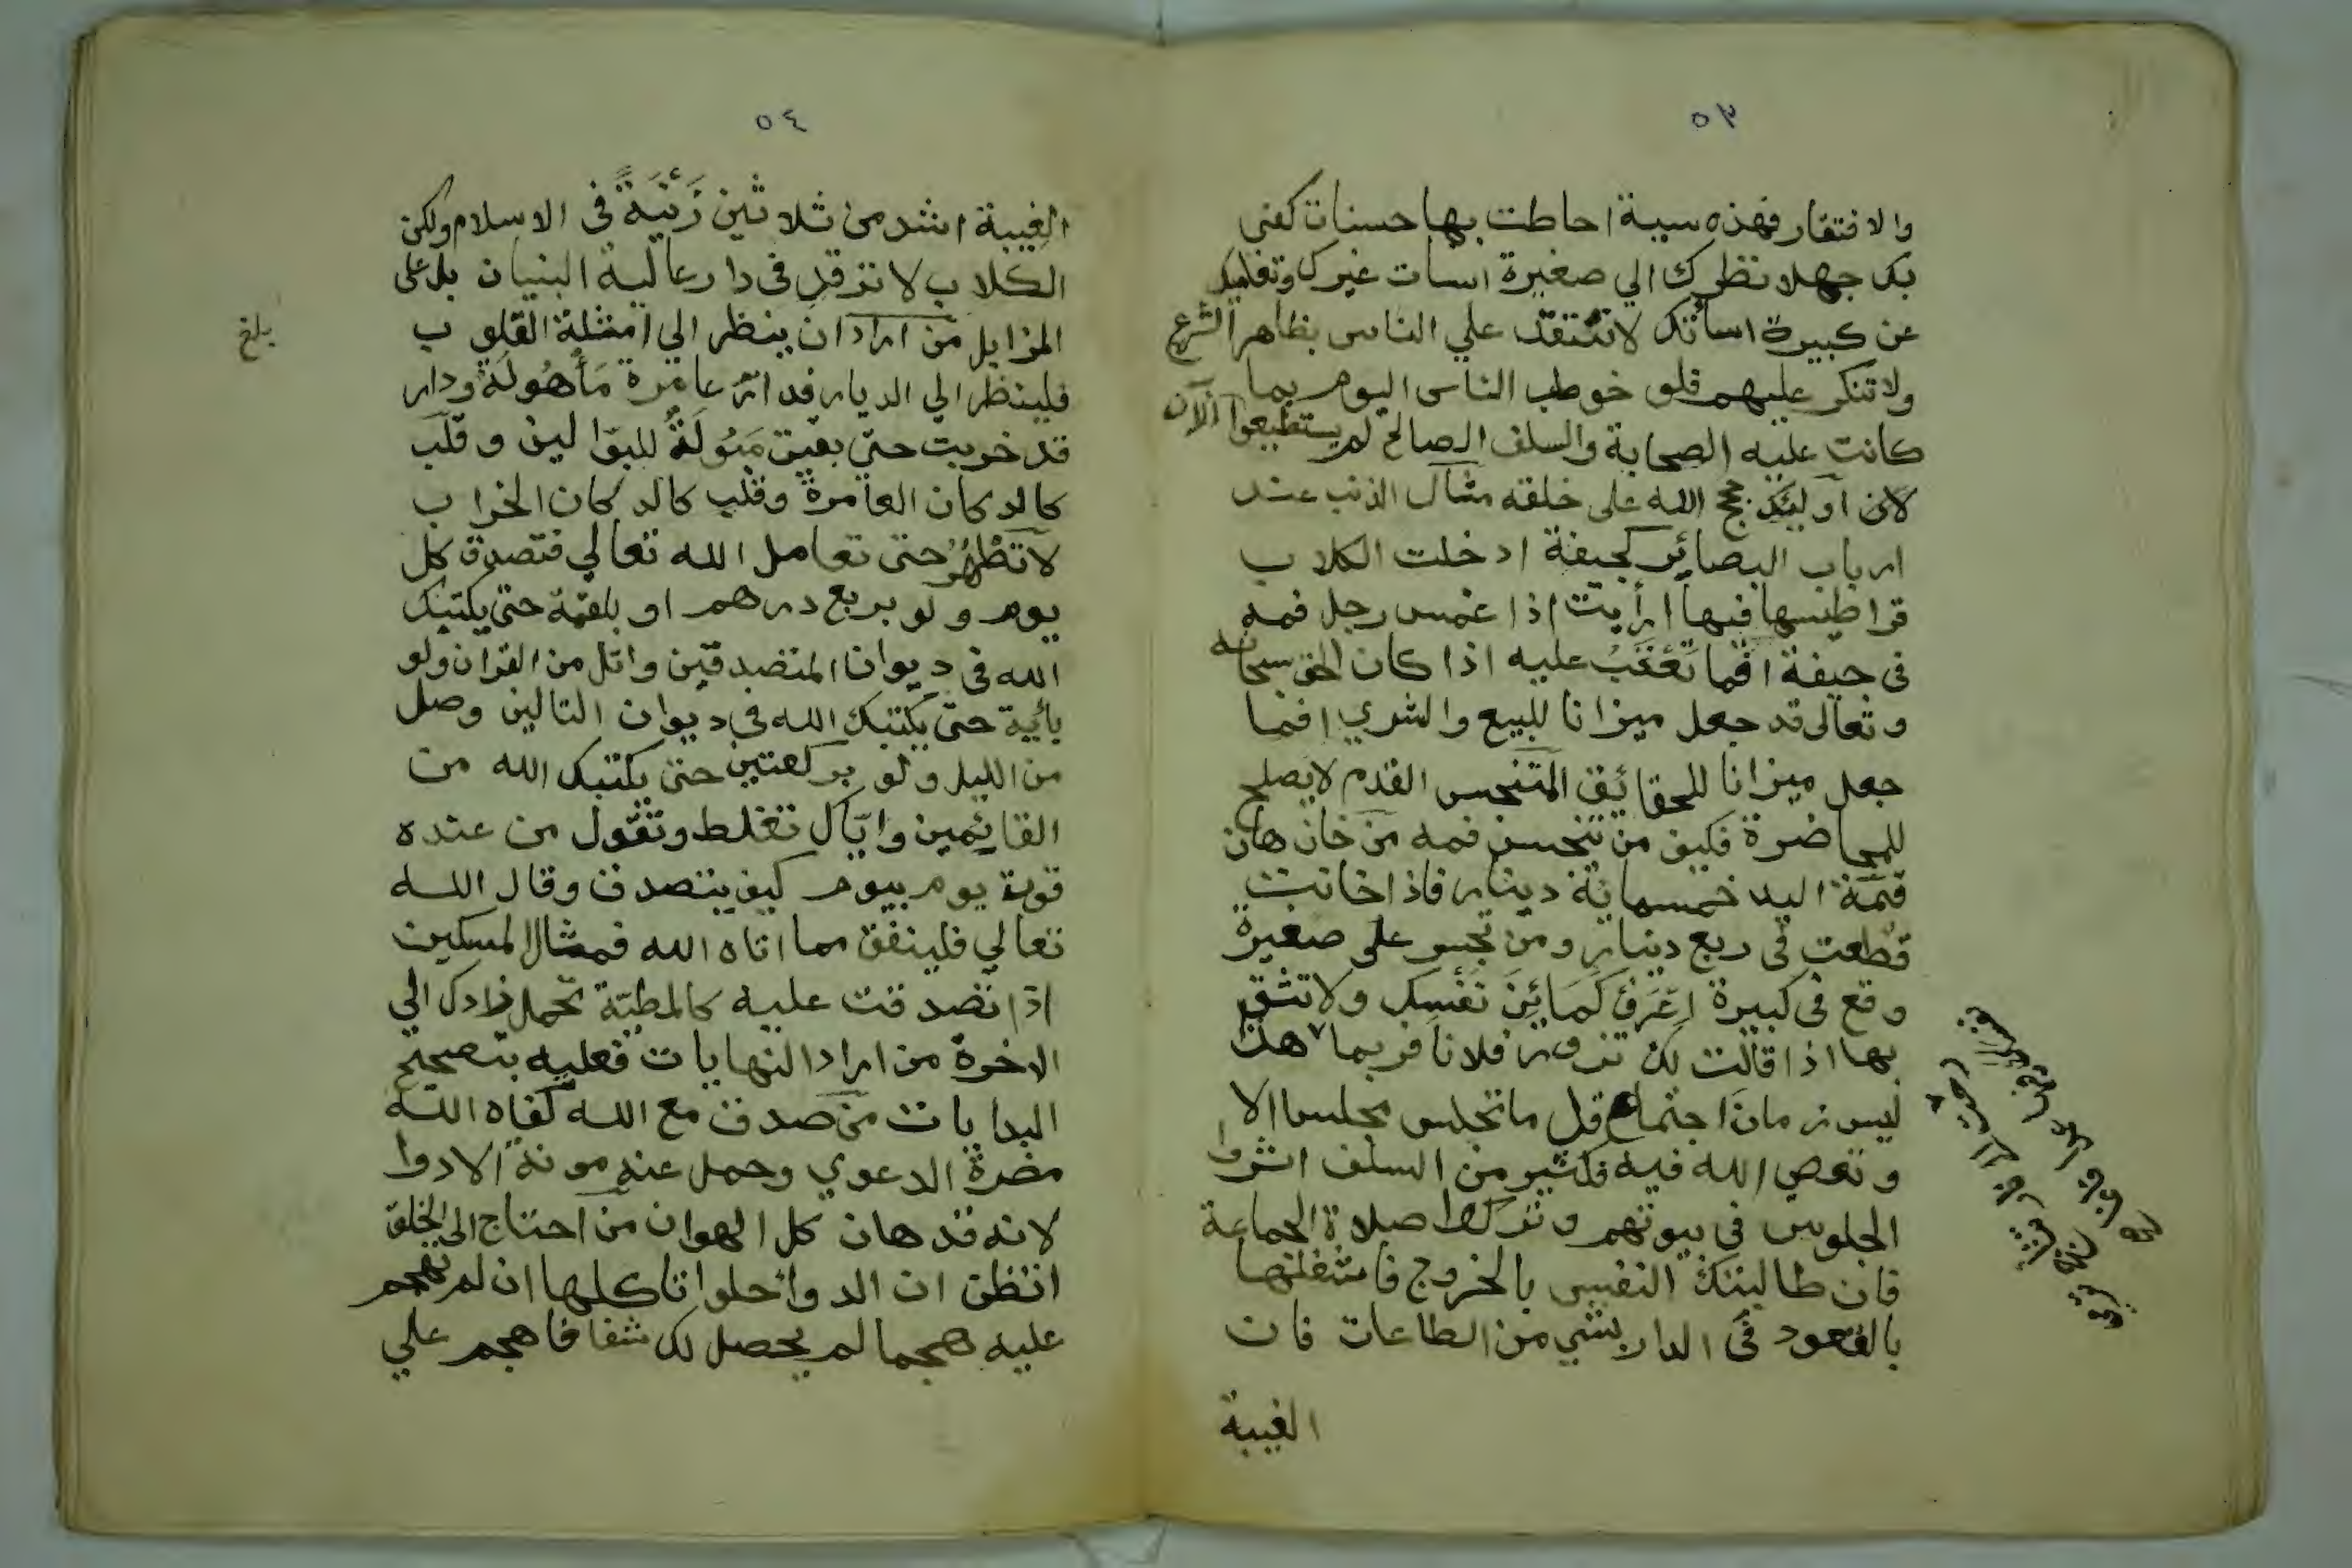 ٥٣
والافتقار فهذه سيبة احاطت بها حسنات كفى
بك جهلا نظرك الي صغيرة اسات غيرك وتغلبك
عن كبيرة اسأتك لا تنتقد علي الناس بظاهر الشرع
ولا تنكر عليهم فلو خوطب الناس اليوم بما
كانت عليه الصحابة والسلف الصالح لم يستطيعوا الآن
لان اولئك حجج الله على خلقه مثال الذنب عند
ارباب البصائر كجيفة ادخلت الكلاب
قراطيسها فيها ارأيت اذا غمس رجل فمه
في جيفة افما تعتب عليه اذا كان الحق سبحانه
وتعالى قد جعل ميزانا للبيع والشري افما
جعل ميزانا للحقائق المتنجس القدم لا يصلح
للمحاضرة فكيف من تنجس فمه من خان هان
قيمة اليد خمسمائة دينار فاذا خانت
قطعت في ربع دينار ومن تجسر على صغيرة
وقع في كبيرة اعرف كمائن نفسك ولا تثق
بها اذا قالت لك تزور فلانا فربما ٧ هذا
ليس زمان اجتماع قل ما تجلس مجلسا الا
وتعصي الله فيه فكثير من السلف اثروا
الجلوس في بيوتهم وتركوا صلاة الجماعة
فان طالبتك النفس بالخروج فاشغلها
بالقعود في الدار بشي من الطاعات فان
الغيبة
٥٤
الغيبة اشد من ثلاثين زَنْيَةً في الاسلام ولكن
الكلاب لا ترقد في دار عالية البنيان بل على
المزابل من اراد ان ينظر الي امثلة القلوب
فلينظر الي الديار فدار عامرة مَأْهُولَة ودار
قد خربت حتى بقيت مَبُولَةً للبوالين وقلب
كالدكان العامرة وقلب كالدكان الخراب
لا تطهر حتى تعامل الله تعالي فتصدق كل
يوم ولو بربع درهم او بلقمة حتى يكتبك
الله في ديوان المتصدقين واتل من القران ولو
بأية حتى يكتبك الله في ديوان التالين وصل
من الليل ولو بركعتين حتى يكتبك الله من
القائمين واياك تغلط وتقول من عنده
قوت يوم بيوم كيف يتصدق وقال الله
تعالي فلينفق مما اتاه الله فمثال المسكين
اذا تصدقت عليه كالمطية تحمل زادك الي
الاخرة من اراد النهايات فعليه بتصحيح
البدايات من صدق مع الله كفاه الله
مضرة الدعوي وحمل عنه مونة الادوا
لانه قد هان كل الهوان من احتاج الى الخلق
اتظن ان الدوا حلوا تاكلها ان لم تهجم
عليه هجما لم يحصل لك شفا فاهجم علي
بلغ